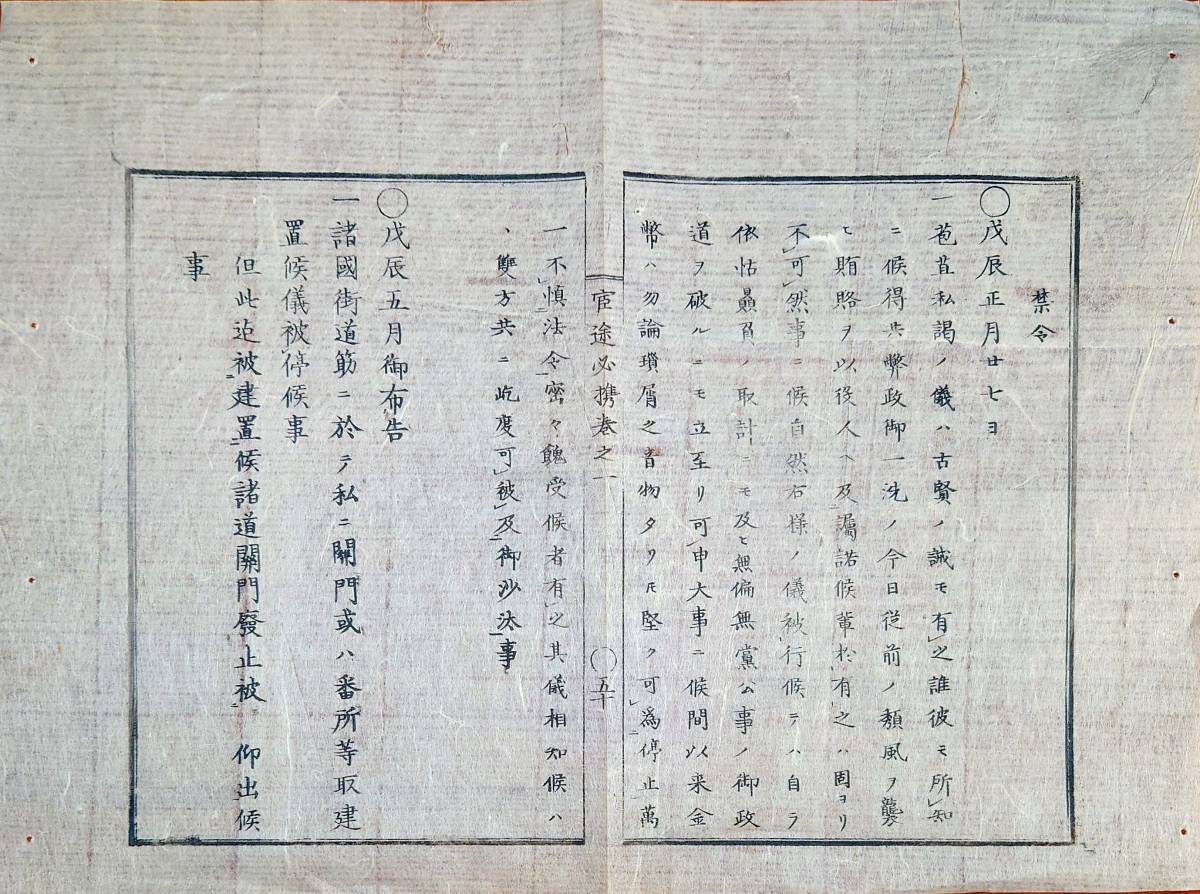 禁令
◯戊辰正月廿七ヨ
一苞苴私謁ノ儀ハ古賢ノ誠モ有之誰彼モ所知
ニ候得共弊政御一洗ノ今日従前ノ頽風ヲ襲
ヒ賄賂ヲ以役人ヘ及讁諾候輩於有之ハ固ヨリ
不可然事ニ候自然右様ノ儀被行候テハ自ラ
依怙贔屓ノ取計ニモ及ヒ無偏無黨公事ノ御政
道ヲ破ルニモ立至リ可申大事ニ候間以来金
幣ハ勿論瑣屑之音物タリ𪜈堅ク可爲停止萬
宦途必携巻之一
◯五十
一不慎法令密々餽受候者有之其儀相知候ハ
、雙方共ニ屹度可被及御沙汰事
◯戊辰五月御布告
一諸國街道筋ニ於テ私ニ關門或ハ番所等取建
置候儀被停候事
但此迠被建置候諸道關門廢止被 仰出候
事